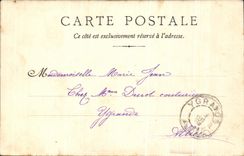 CARTE POSTALE
Ce côté est exclusivement réservé à l'adresse.
Mademoiselle Marie Jean
Chez Mme Durot couturière
Ygrande
Allier
YGRANDE